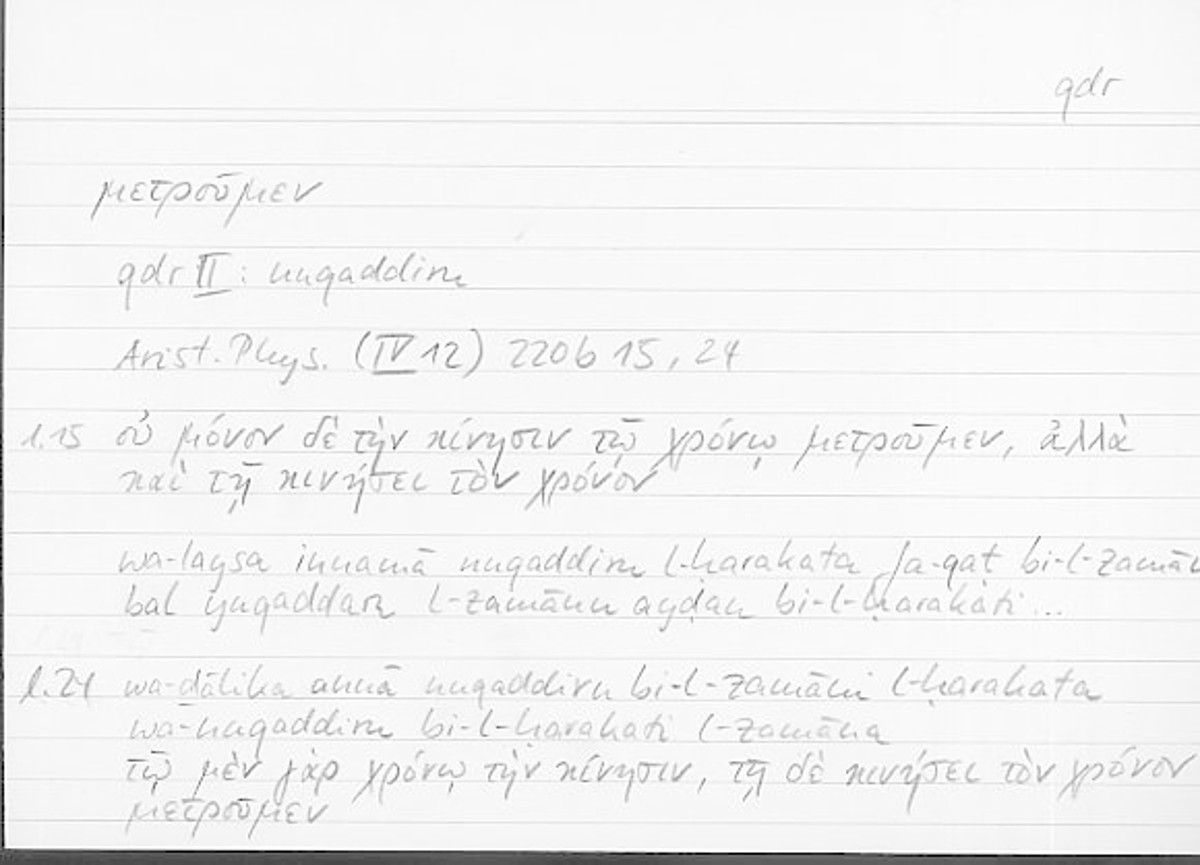 qdr
μετροῦμεν
qdr II : nuqaddiru
Arist. Phys. (IV 12) 220b 15, 24
l.15 οὐ μόνον δὲ τὴν κίνησιν τῷ χρόνῳ μετροῦμεν, ἀλλὰ
καὶ τῇ κινήσει τὸν χρόνον
wa-laysa innamā nuqaddiru l-ḥarakata fa-qaṭ bi-l-zamān
bal yuqaddaru l-zamānu ayḍan bi-l-ḥarakati...
l.24 wa-ḏālika annā nuqaddiru bi-l-zamāni l-ḥarakata
wa-nuqaddiru bi-l-ḥarakati l-zamāna
τῷ μὲν γὰρ χρόνῳ τὴν κίνησιν, τῇ δὲ κινήσει τὸν χρόνον
μετροῦμεν